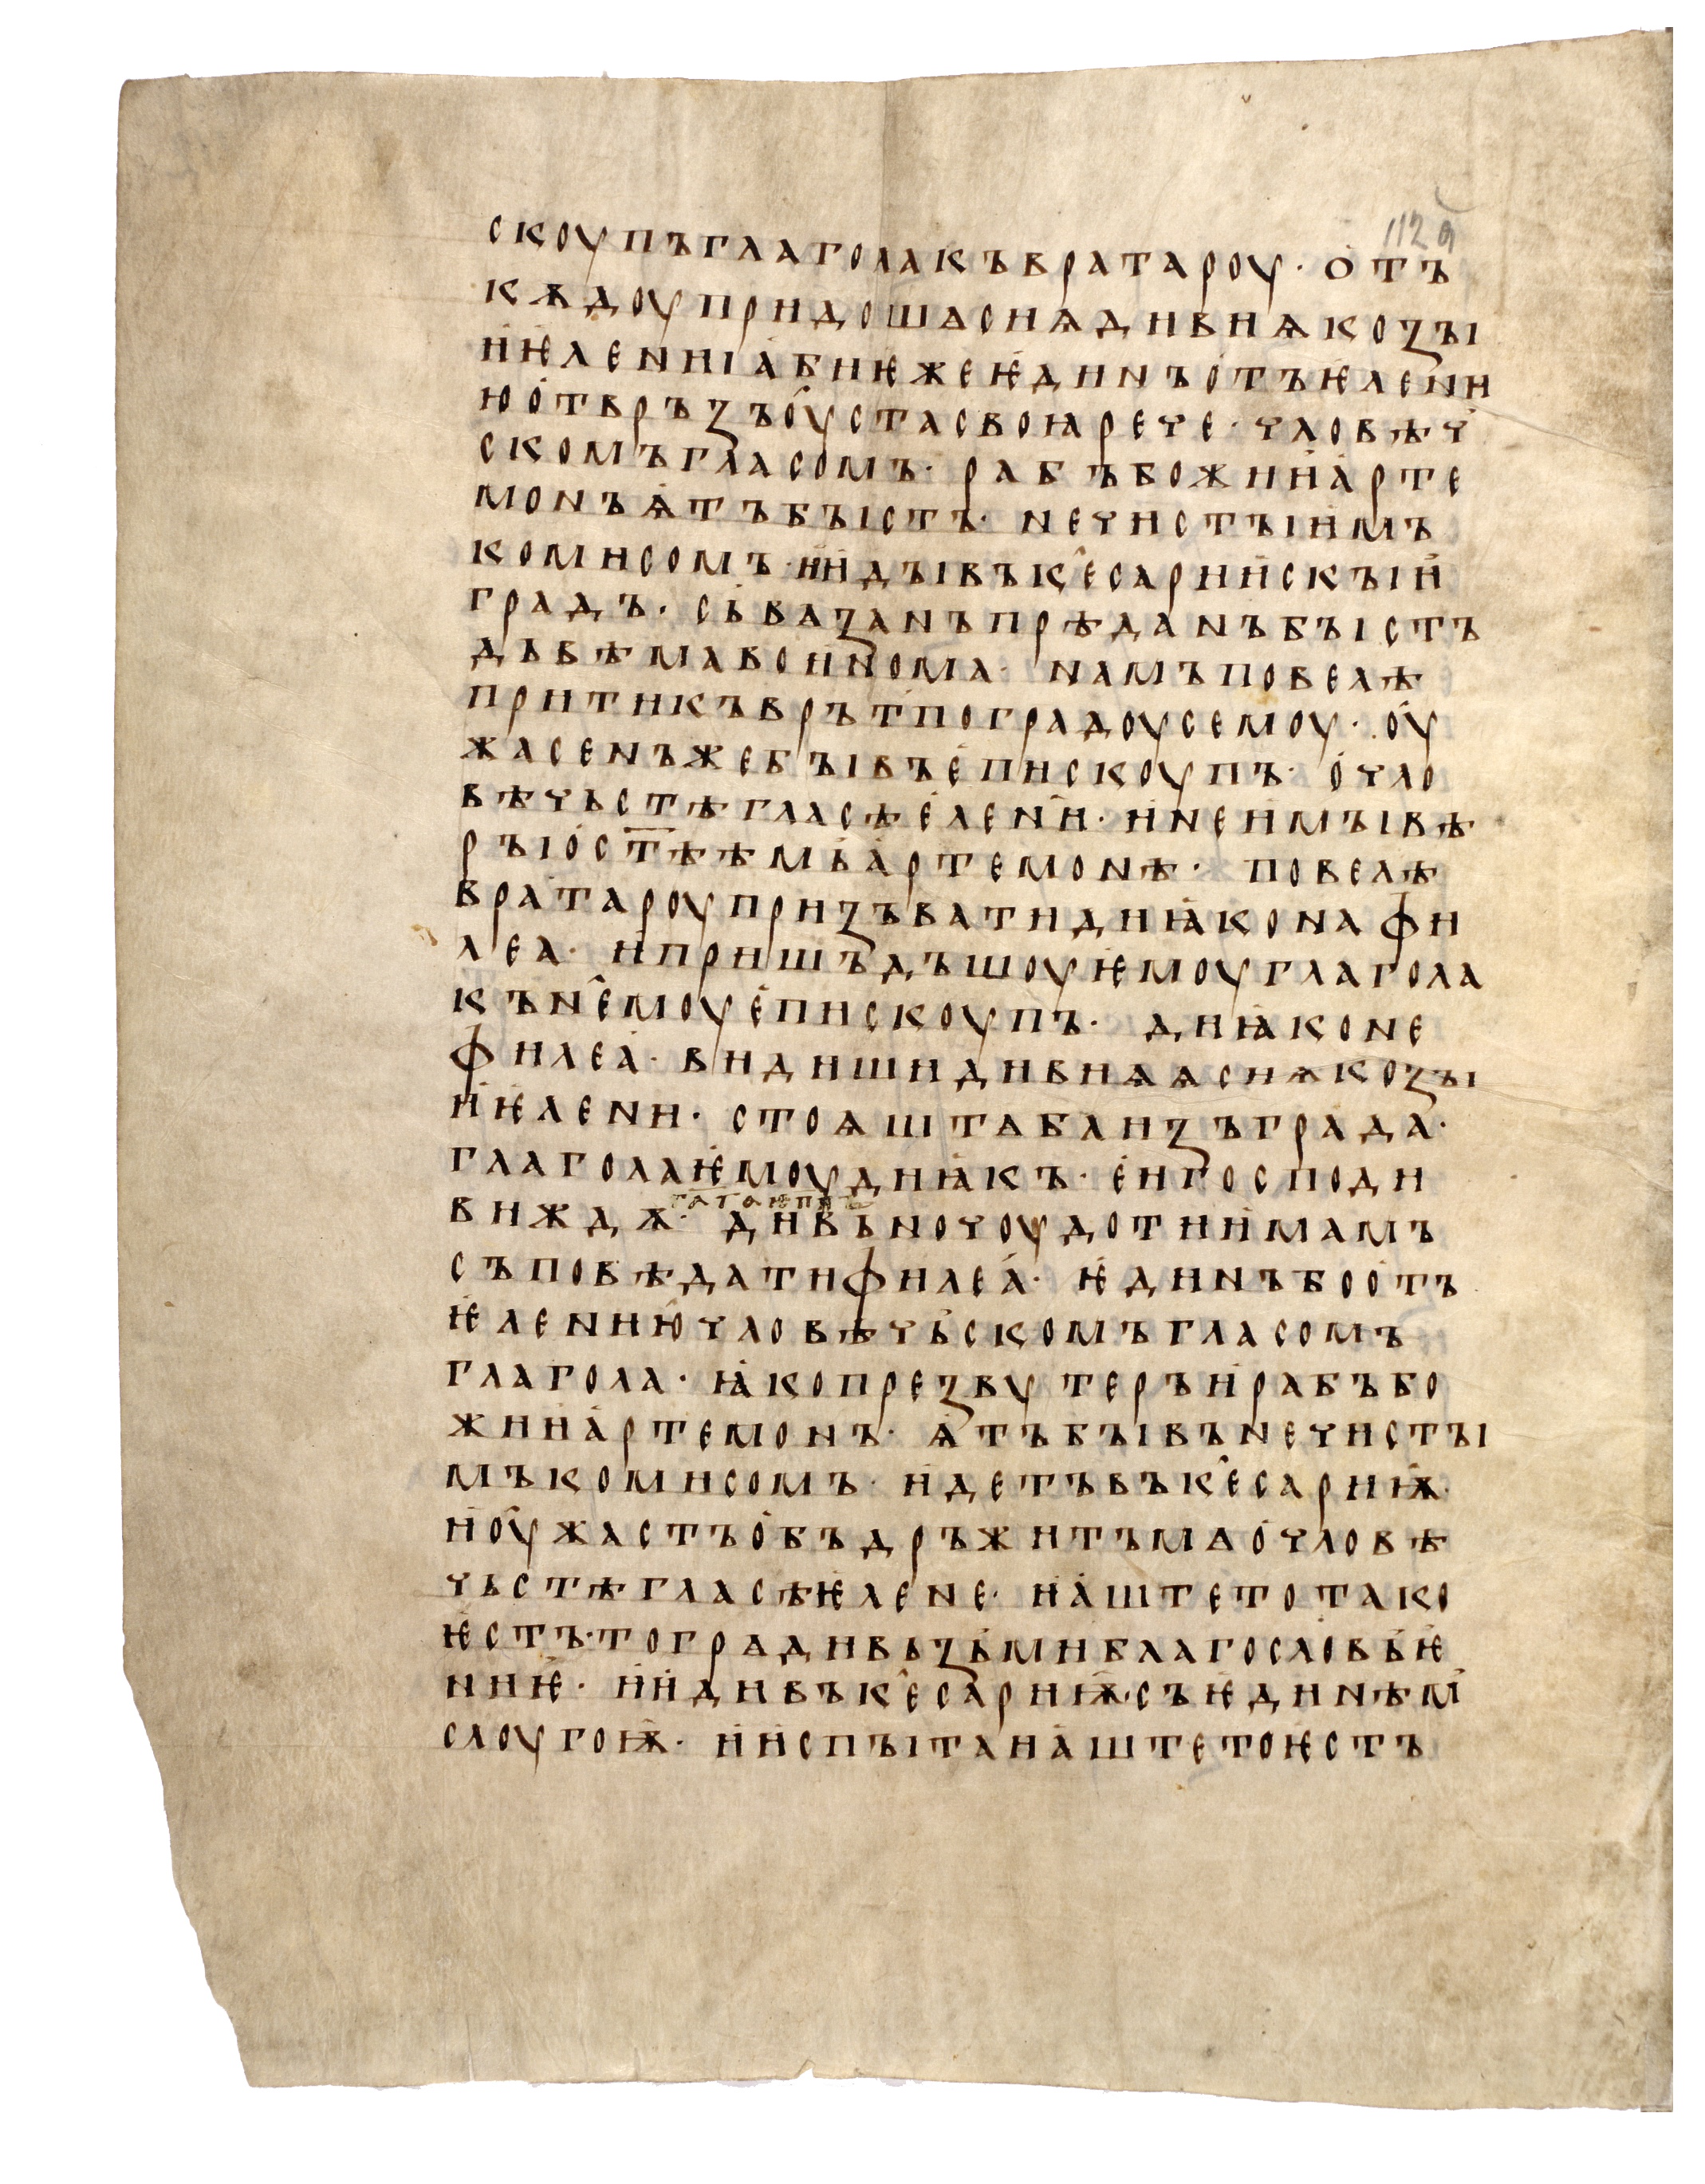 112а
скоупъглаголакъвратароу· о҅тъ
кѫдоупридошѧсиѩдивиѩкозꙑ
и҅ѥ҅лениі а҅биѥжеѥ҅динъо҅тъѥ҅лени
ю о҅твръзъоу҅стасвоꙗрече· чловѣч҆
скомъгласомъ· рабъбожии҅а҅рте
монъѩ҅тъбꙑстъ· нечистꙑи҅мъ
комисомъ· и҅и҅дꙑвък҄есарии҅скꙑи҅
градъ· съвѧзанъпрѣданъбꙑстъ
дъвѣмавои҅нома· намъповелѣ
притикъврът҆поградоусемоу· оу҅
жасенъжебꙑвъе҅пискоупъ· о҅чло
вѣчьстѣгласѣе҅лен҄и· и҅неи҅мꙑвѣ
рꙑо҅ст҃ѣѣмьа҅ртемонѣ· повелѣ
вратароупризъватидиꙗ҅конафи
леа· и҅пришъдъшоуѥ҅моуглагола
кън҄емоуе҅пискоупъ· диꙗ҅коне
филеа҅· видишидивиѩѩсиѩкозꙑ
и҅ѥ҅лени· стоѩштѧблизъграда·
глаголаѥ҅моудиꙗ҅къ· е҅игосподи
виждѫ· дивьночоудотии҅мамъ
съповѣдатифилеа҅· ѥ҅динъбоо҅тъ
ѥ҅лению҅чловѣчьскомъгласомъ
глагола· ꙗ҅копрезвутеръи҅рабъбо
жии҅а҅ртемонъ· ѩ҅тъбꙑвънечистꙑ
мъкомисомъ· и҅детъвък҄есариѭ҅·
и҅оу҅жастъо҅бъдръжитъмѧо҅чловѣ
чьстѣгласѣѥ҅лене· и҅а҅штетотако
ѥ҅стъ· тоградивьзьмиблагословьѥ҅
ниѥ҅· и҅и҅дивък҄есариѭ҅· съѥ҅динѣм҆
слоугоѭ҅· и҅и҅спꙑтаиа҅штетоѥ҅стъ